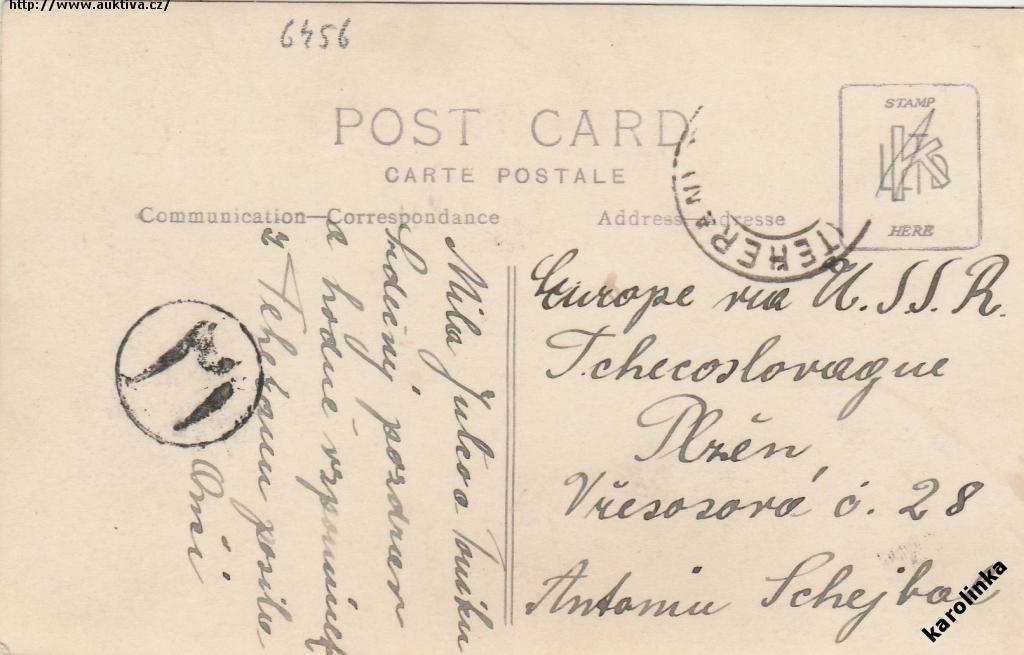 http://www.auktiva.cz/
6456
POST CARD
CARTE POSTALE
Communication—Correspondance
Address—Adresse
STAMP
HERE
TEHERAN
Milá Julčo a Toníku
Srdečný pozdrav
a hodně vzpomínek
z Teheranu posílá
Europe via U.S.S.R.
Tchecoslovaque
Plzěn,
Vřesosová č. 28
Antoniu Schejbal
karolinka